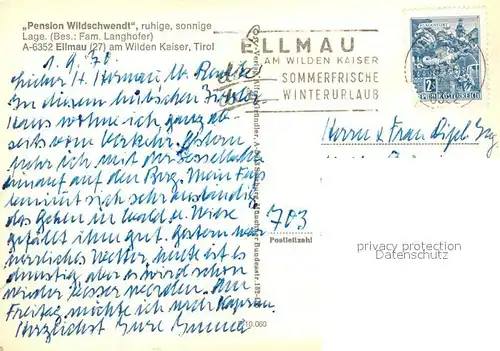 „Pension Wildschwendt", ruhige, sonnige
Lage. (Bes.: Fam. Langhofer)
A-6352 Ellmau (27) am Wilden Kaiser, Tirol
1. 9. 70.
In diesem hübschen
Haus wohne ich ganz ab-
seits vom Verkehr. Gestern
fuhr ich mit der Sessel
hinauf auf den Berg. Mein Fuß
benimmt sich sehr anständig
das Gehen in Wald u. Wiese
gefällt ihm gut. Gestern war
herrliches Wetter, heute ist es
dunstig, aber es wird schon
wieder besser werden. Am
Freitag möchte ich nach Kaprun.
Herzlichst Eure Emma
ELLMAU
AM WILDEN KAISER
SOMMERFRISCHE
WINTERURLAUB
REPUBLIK ÖSTERREICH
Herrn u Frau
703
Postleitzahl
privacy protection
Datenschutz